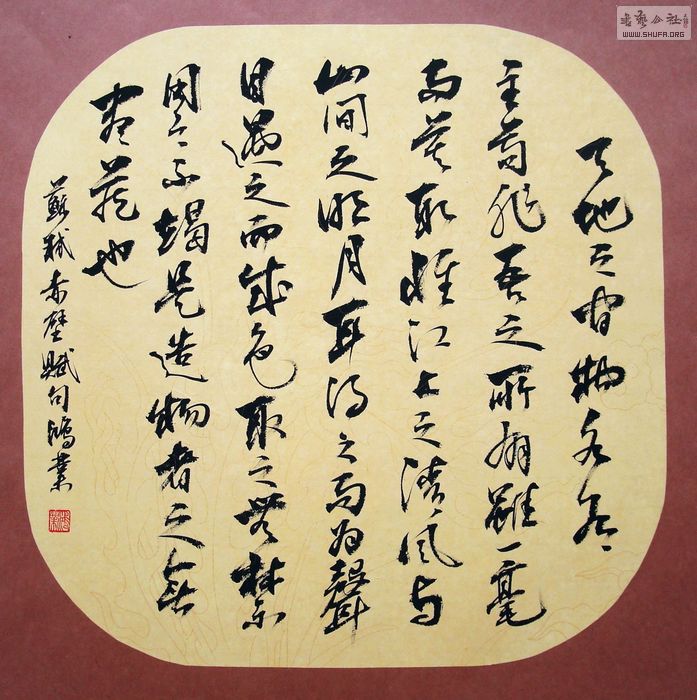 天地之間物各有
主苟非吾之所有雖一毫
而莫取惟江上之清風与
山間之明月耳得之而為聲
目遇之而成色取之無禁
用之不竭是造物者之無
盡藏也
蘇軾赤壁賦句鴻業
書藝公社
WWW.SHUFA.ORG